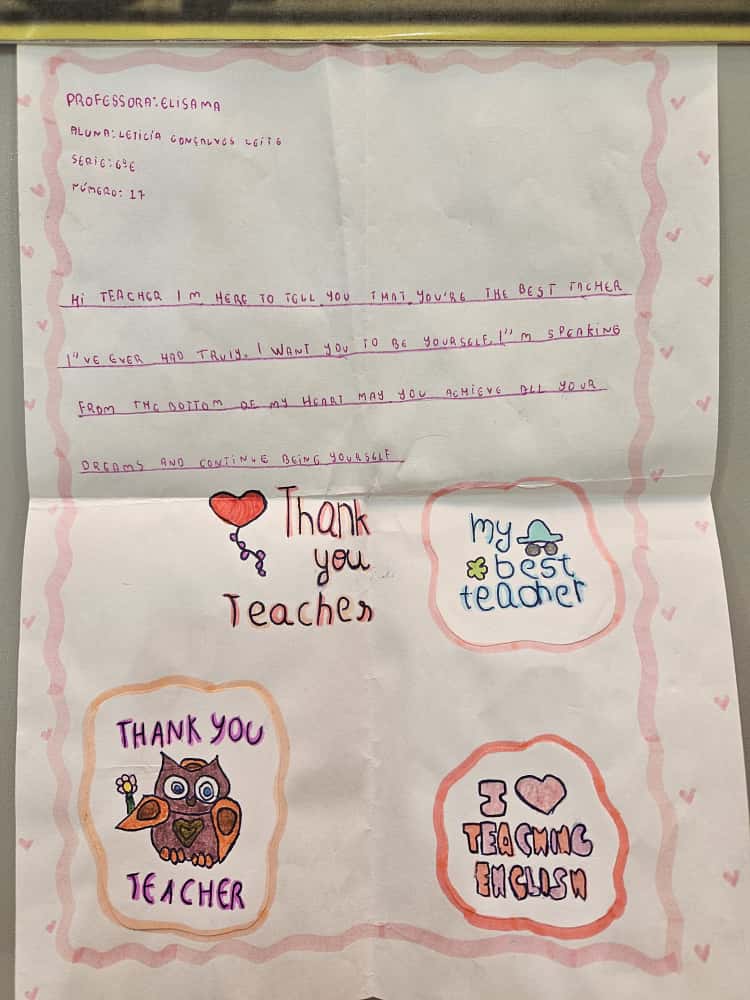 PROFESSORA: ELISAMA
ALUNA: LETICIA GONÇALVES LEITE
SERIE: 6ºE
NÚMERO: 17
HI TEACHER I M HERE TO TELL YOU THAT YOU'RE THE BEST TACHER
I"VE EVER HAD TRULY. I WANT YOU TO BE YOURSELF, I"M SPEAKING
FROM THE BOTTOM OF MY HEART MAY YOU ACHIEVE ALL YOUR
DREAMS AND CONTINUE BEING YOURSELF
Thank
you
Teacher
my
best
teacher
THANK YOU
TEACHER
I
TEACHING
ENGLISH